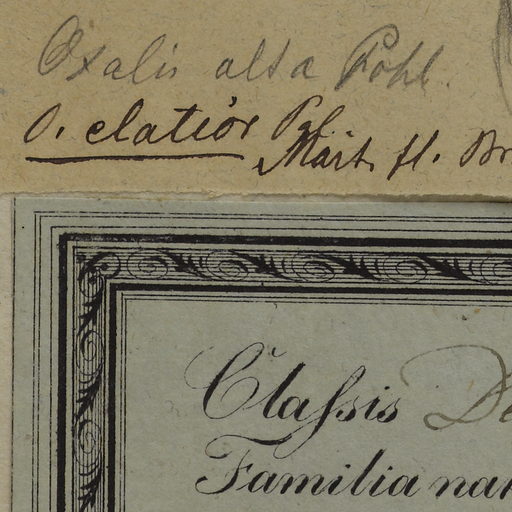 Oxalis alta Pohl.
O. elatior
Mart. fl. Br
Claſsis De
Familia nat